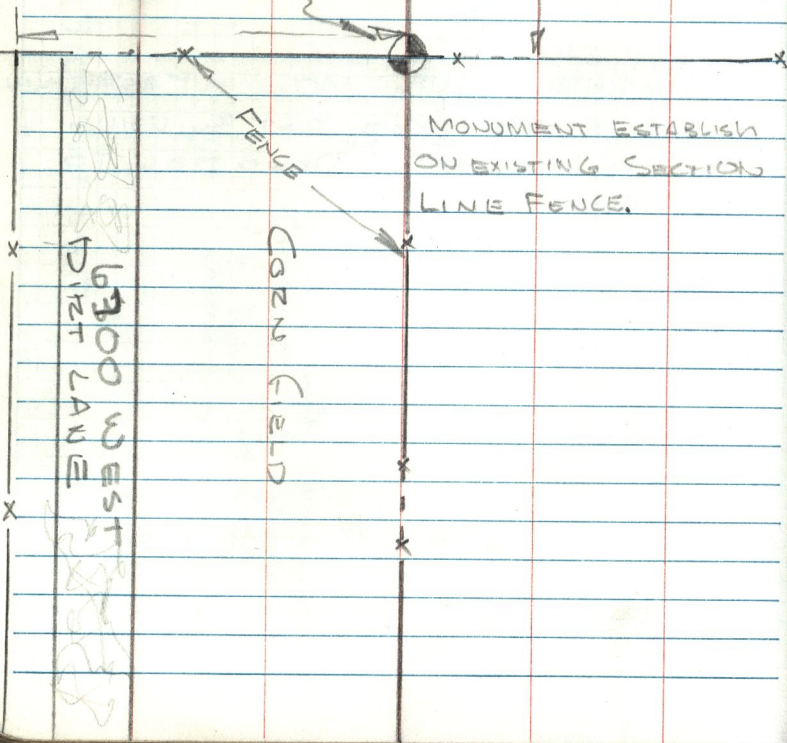 FENCE
MONUMENT ESTABLISH
ON EXISTING SECTION
LINE FENCE.
CORN FIELD
6300 WEST
DIRT LANE